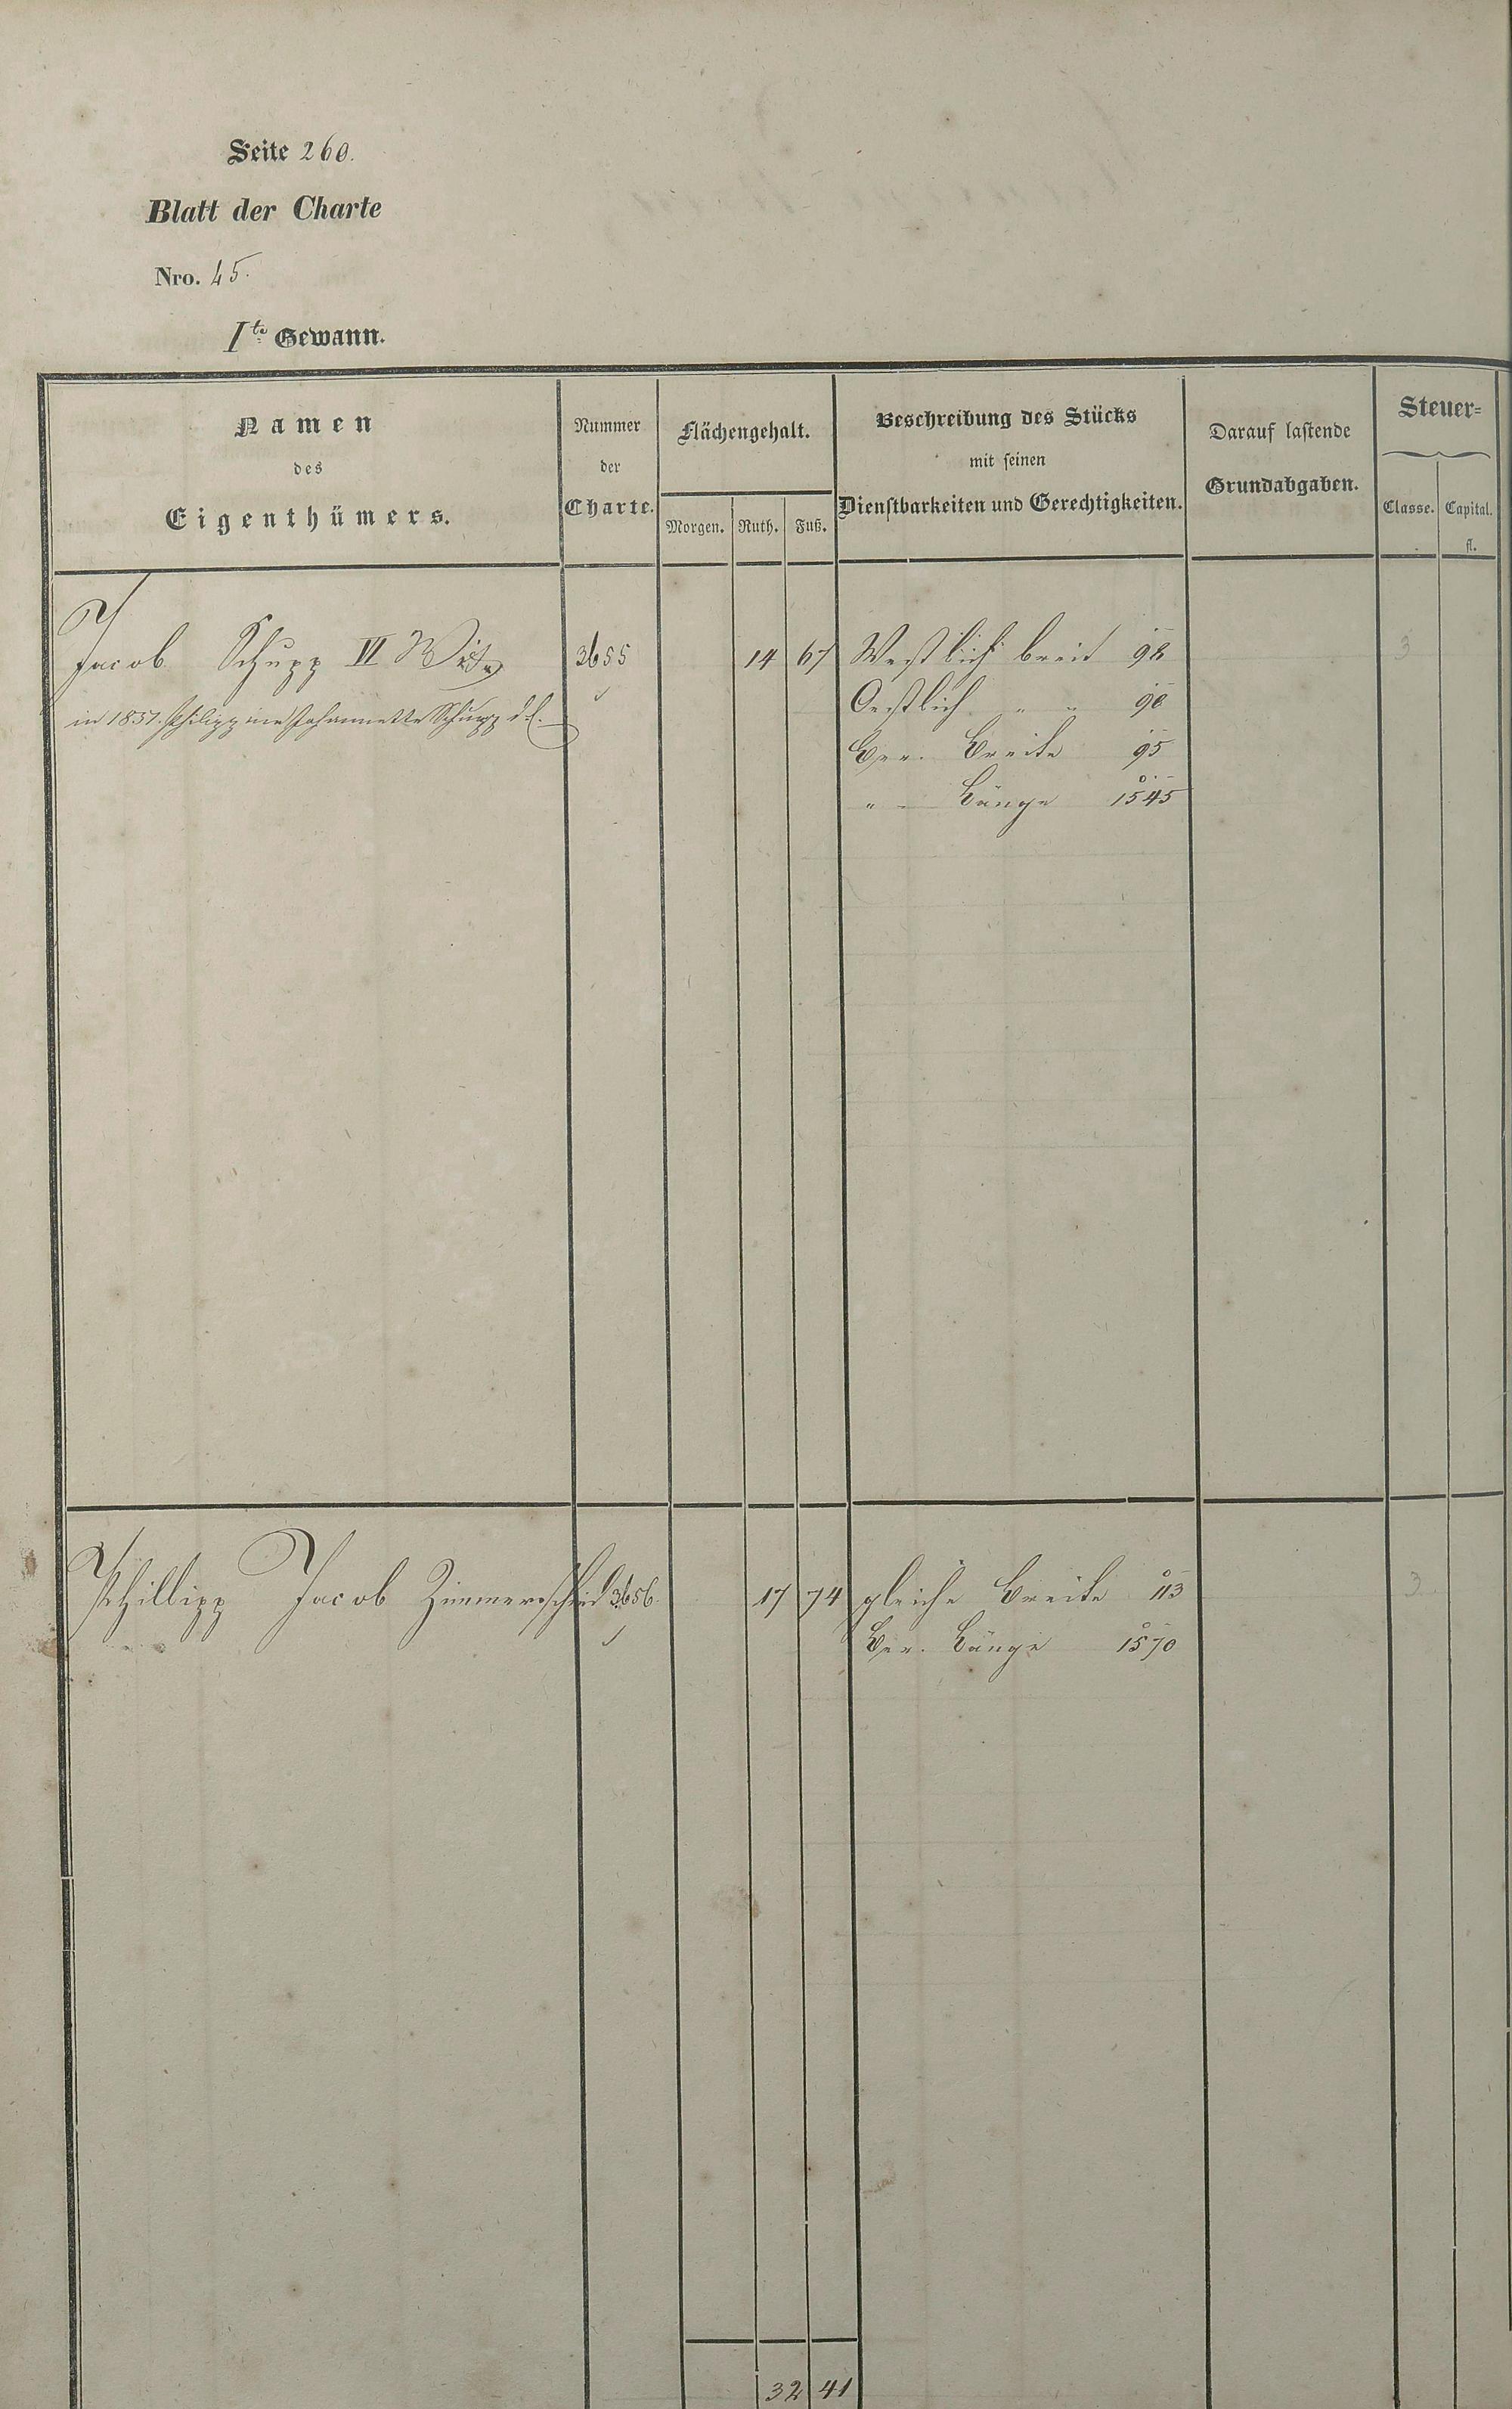 Seite 260.
Blatt der Charte
Nro. 45.
I te Gewann.
Namen
des
Eigenthümers.
Nummer
der
Charte.
Flächengehalt.
Morgen. Ruth. Fuß.
Beschreibung des Stücks
mit seinen
Dienstbarkeiten und Gerechtigkeiten.
Darauf lastende
Grundabgaben.
Steuer=
Classe. Capital.
fl.
Jacob Schupp VI Wtw 3655 14 67 Westlich breit 98 3
in 1857. Philippine Johannette Schupp d. l. Oestlich " " 90
Ber. Breite 95
" " Länge 1545
Phillipp Jacob Zimmerschied 3656. 17 74 gleiche Breite 113 3
Ber. Länge 1570
32 41